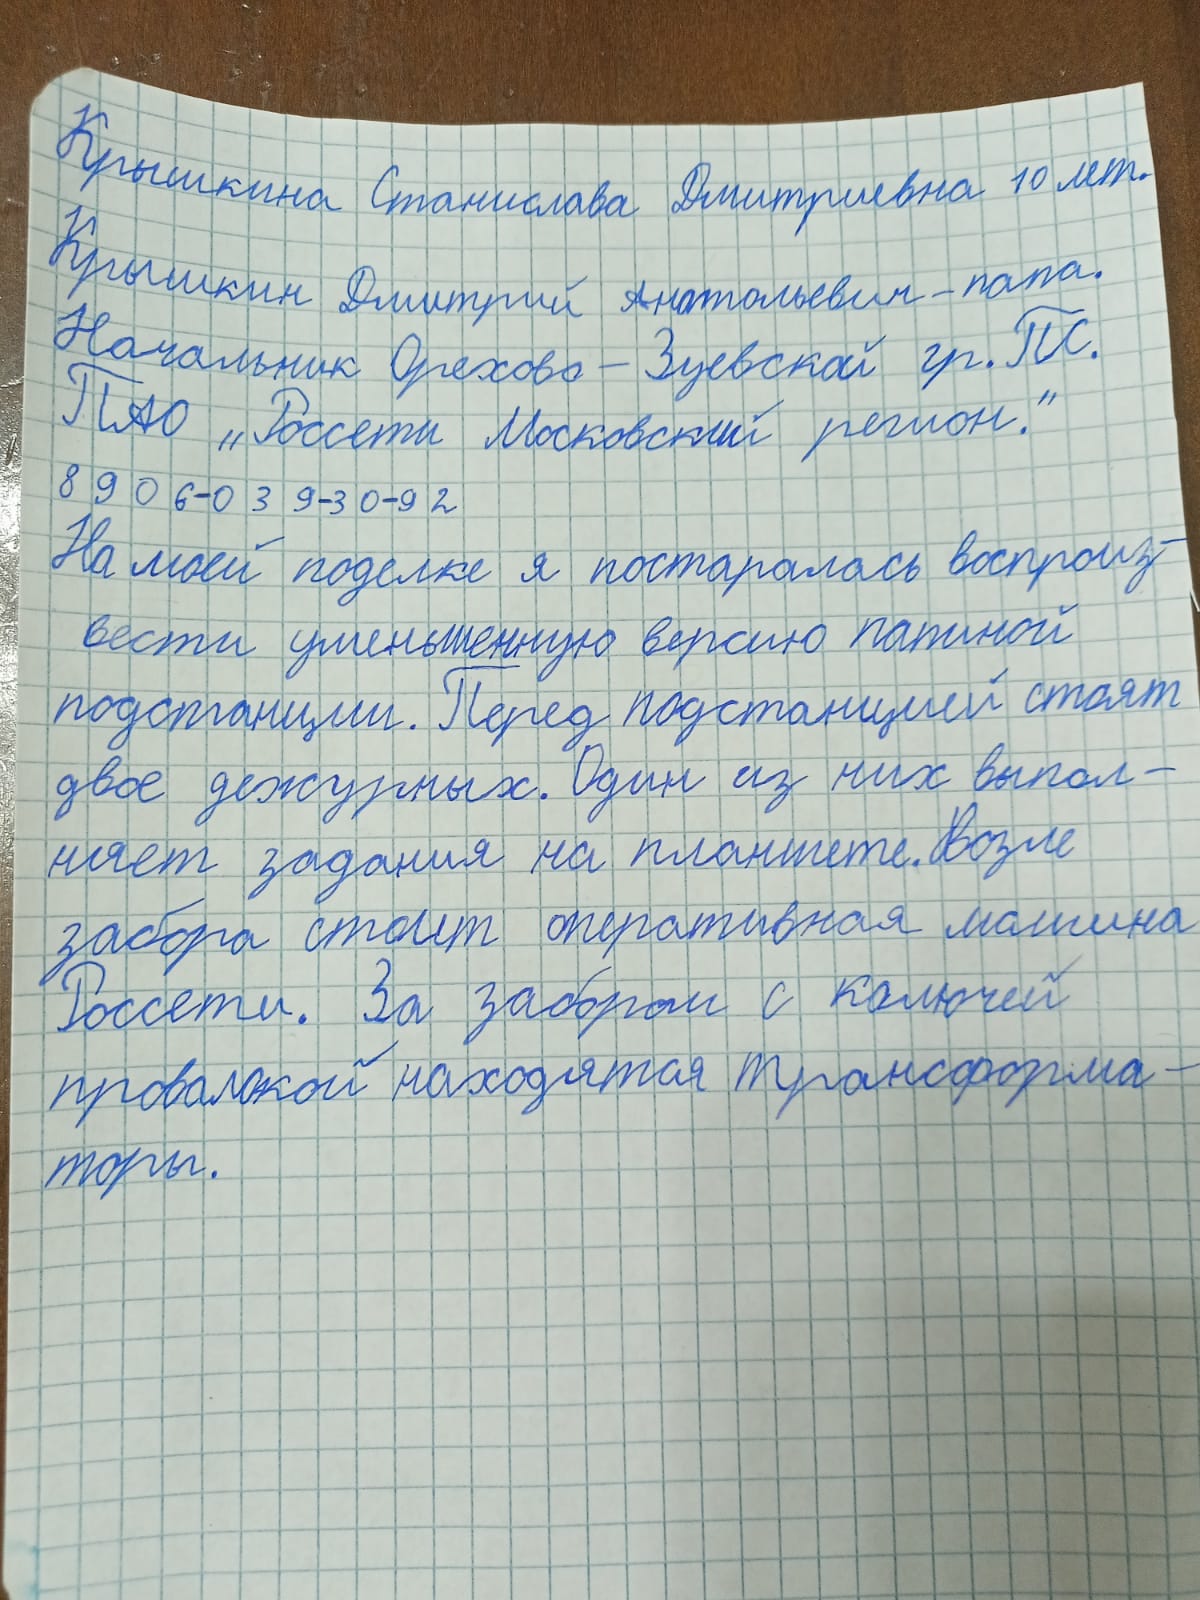 Крышкина Станислава Дмитриевна 10 лет.
Крышкин Дмитрий Анатольевич – папа.
Начальник Орехово – Зуевской гр. ПС.
ПАО „Россети Московский регион."
8 9 0 6-0 3 9-3 0-9 2
На моей поделке я постаралась воспроиз-
вести уменьшенную версию папиной
подстанции. Перед подстанцией стоят
двое дежурных. Один из них выпол-
няет задания на планшете. Возле
забора стоит оперативная машина
Россети. За забором с колючей
проволокой находятся трансформа-
торы.